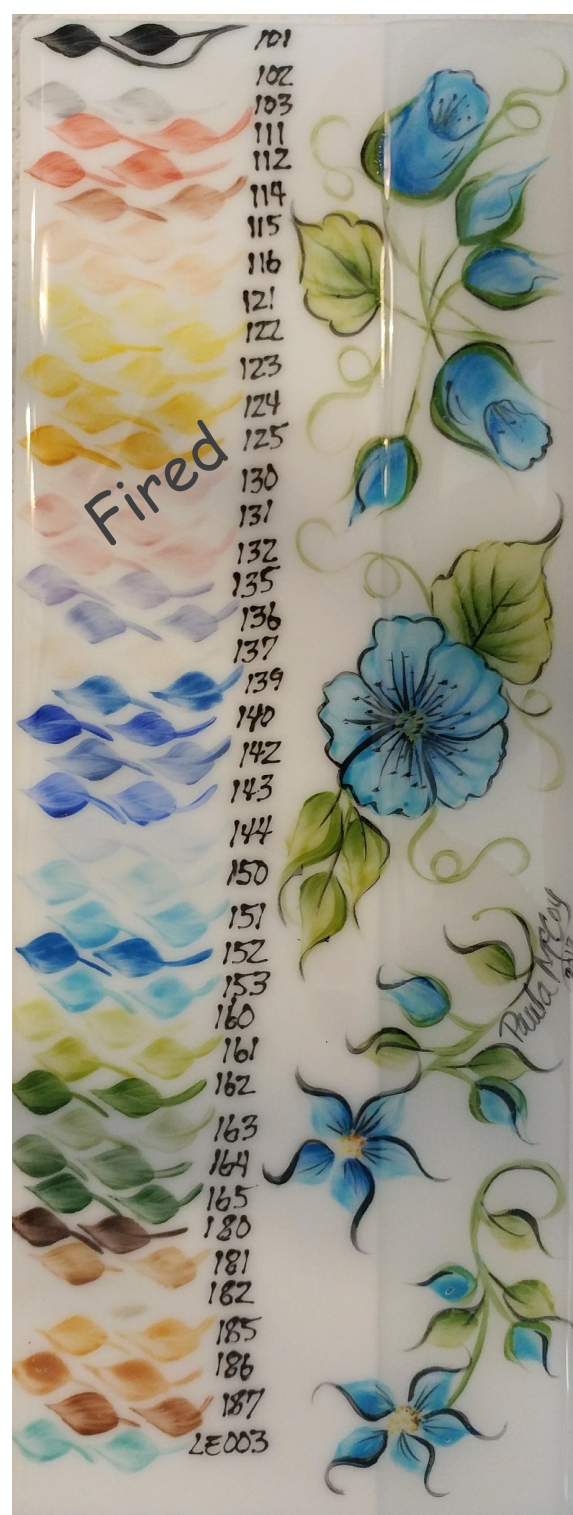 101
102
103
111
112
114
115
116
121
122
123
124
125
Fired
130
131
132
135
136
137
139
140
142
143
144
150
151
152
153
160
161
162
163
164
165
180
181
182
185
186
187
LE003
Paula McCoy